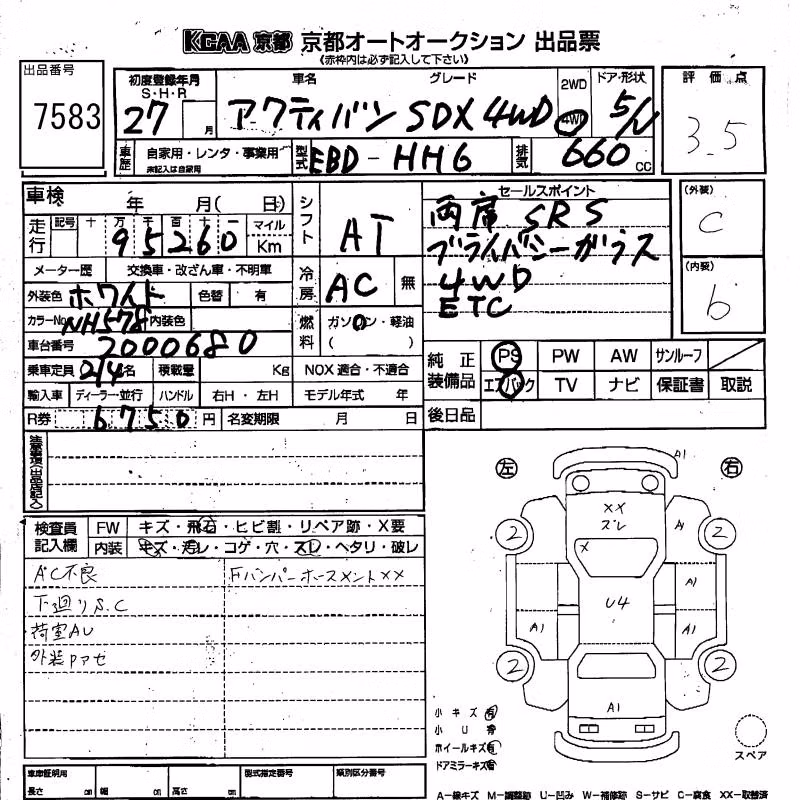 KCAA 京都 京都オートオークション 出品票
《赤枠内は必ず記入して下さい》
出品番号 7583
初度登録年月 S・H・R 27 月
車名 グレード アクティバン SDX 4WD
2WD 4WD
ドア・形状 5/V
評価点 3.5
車歴 自家用・レンタ・事業用 未記入は自家用
型式 EBD-HH6
排気 660 CC
車検 年 月( 日)
シフト AT
セールスポイント
両席 SRS
プライバシーガラス
4WD
ETC
(外装) C
(内装) b
走行 記号 十 万 千 百 十 一 95260 マイル Km
メーター歴 交換車・改ざん車・不明車
冷房 AC 無
外装色 ホワイト 色替 有
カラーNo. NH578 内装色
燃料 ガソリン・軽油 ( )
車台番号 2000680
乗車定員 2/4名 積載量 Kg NOX 適合・不適合
輸入車 ディーラー・並行 ハンドル 右H・左H モデル年式 年
R券 6750円 名変期限 月 日
純正装備品 PS PW AW サンルーフ
エアバック TV ナビ 保証書 取説
後日品
注意事項(出品店記入)
検査員記入欄 FW キズ・飛石・ヒビ割・リペア跡・X要
内装 キズ・汚レ・コゲ・穴・スレ・ヘタリ・破レ
A/C不良
Fバンパーホースメント××
下廻りS.C
荷室AU
外装Pアセ
左 右
A1
XX
ズレ
A1
2 2
X
A1
U4
A1 A1
2 2
A1
小キズ 有
小U 有
ホイールキズ 有
ドアミラーキズ 有
スペア
車庫証明用 長さ cm 幅 cm 高さ cm 型式指定番号 類別区分番号
A-線キズ M-調整跡 U-凹み W-補修跡 S-サビ C-腐食 XX-取替済